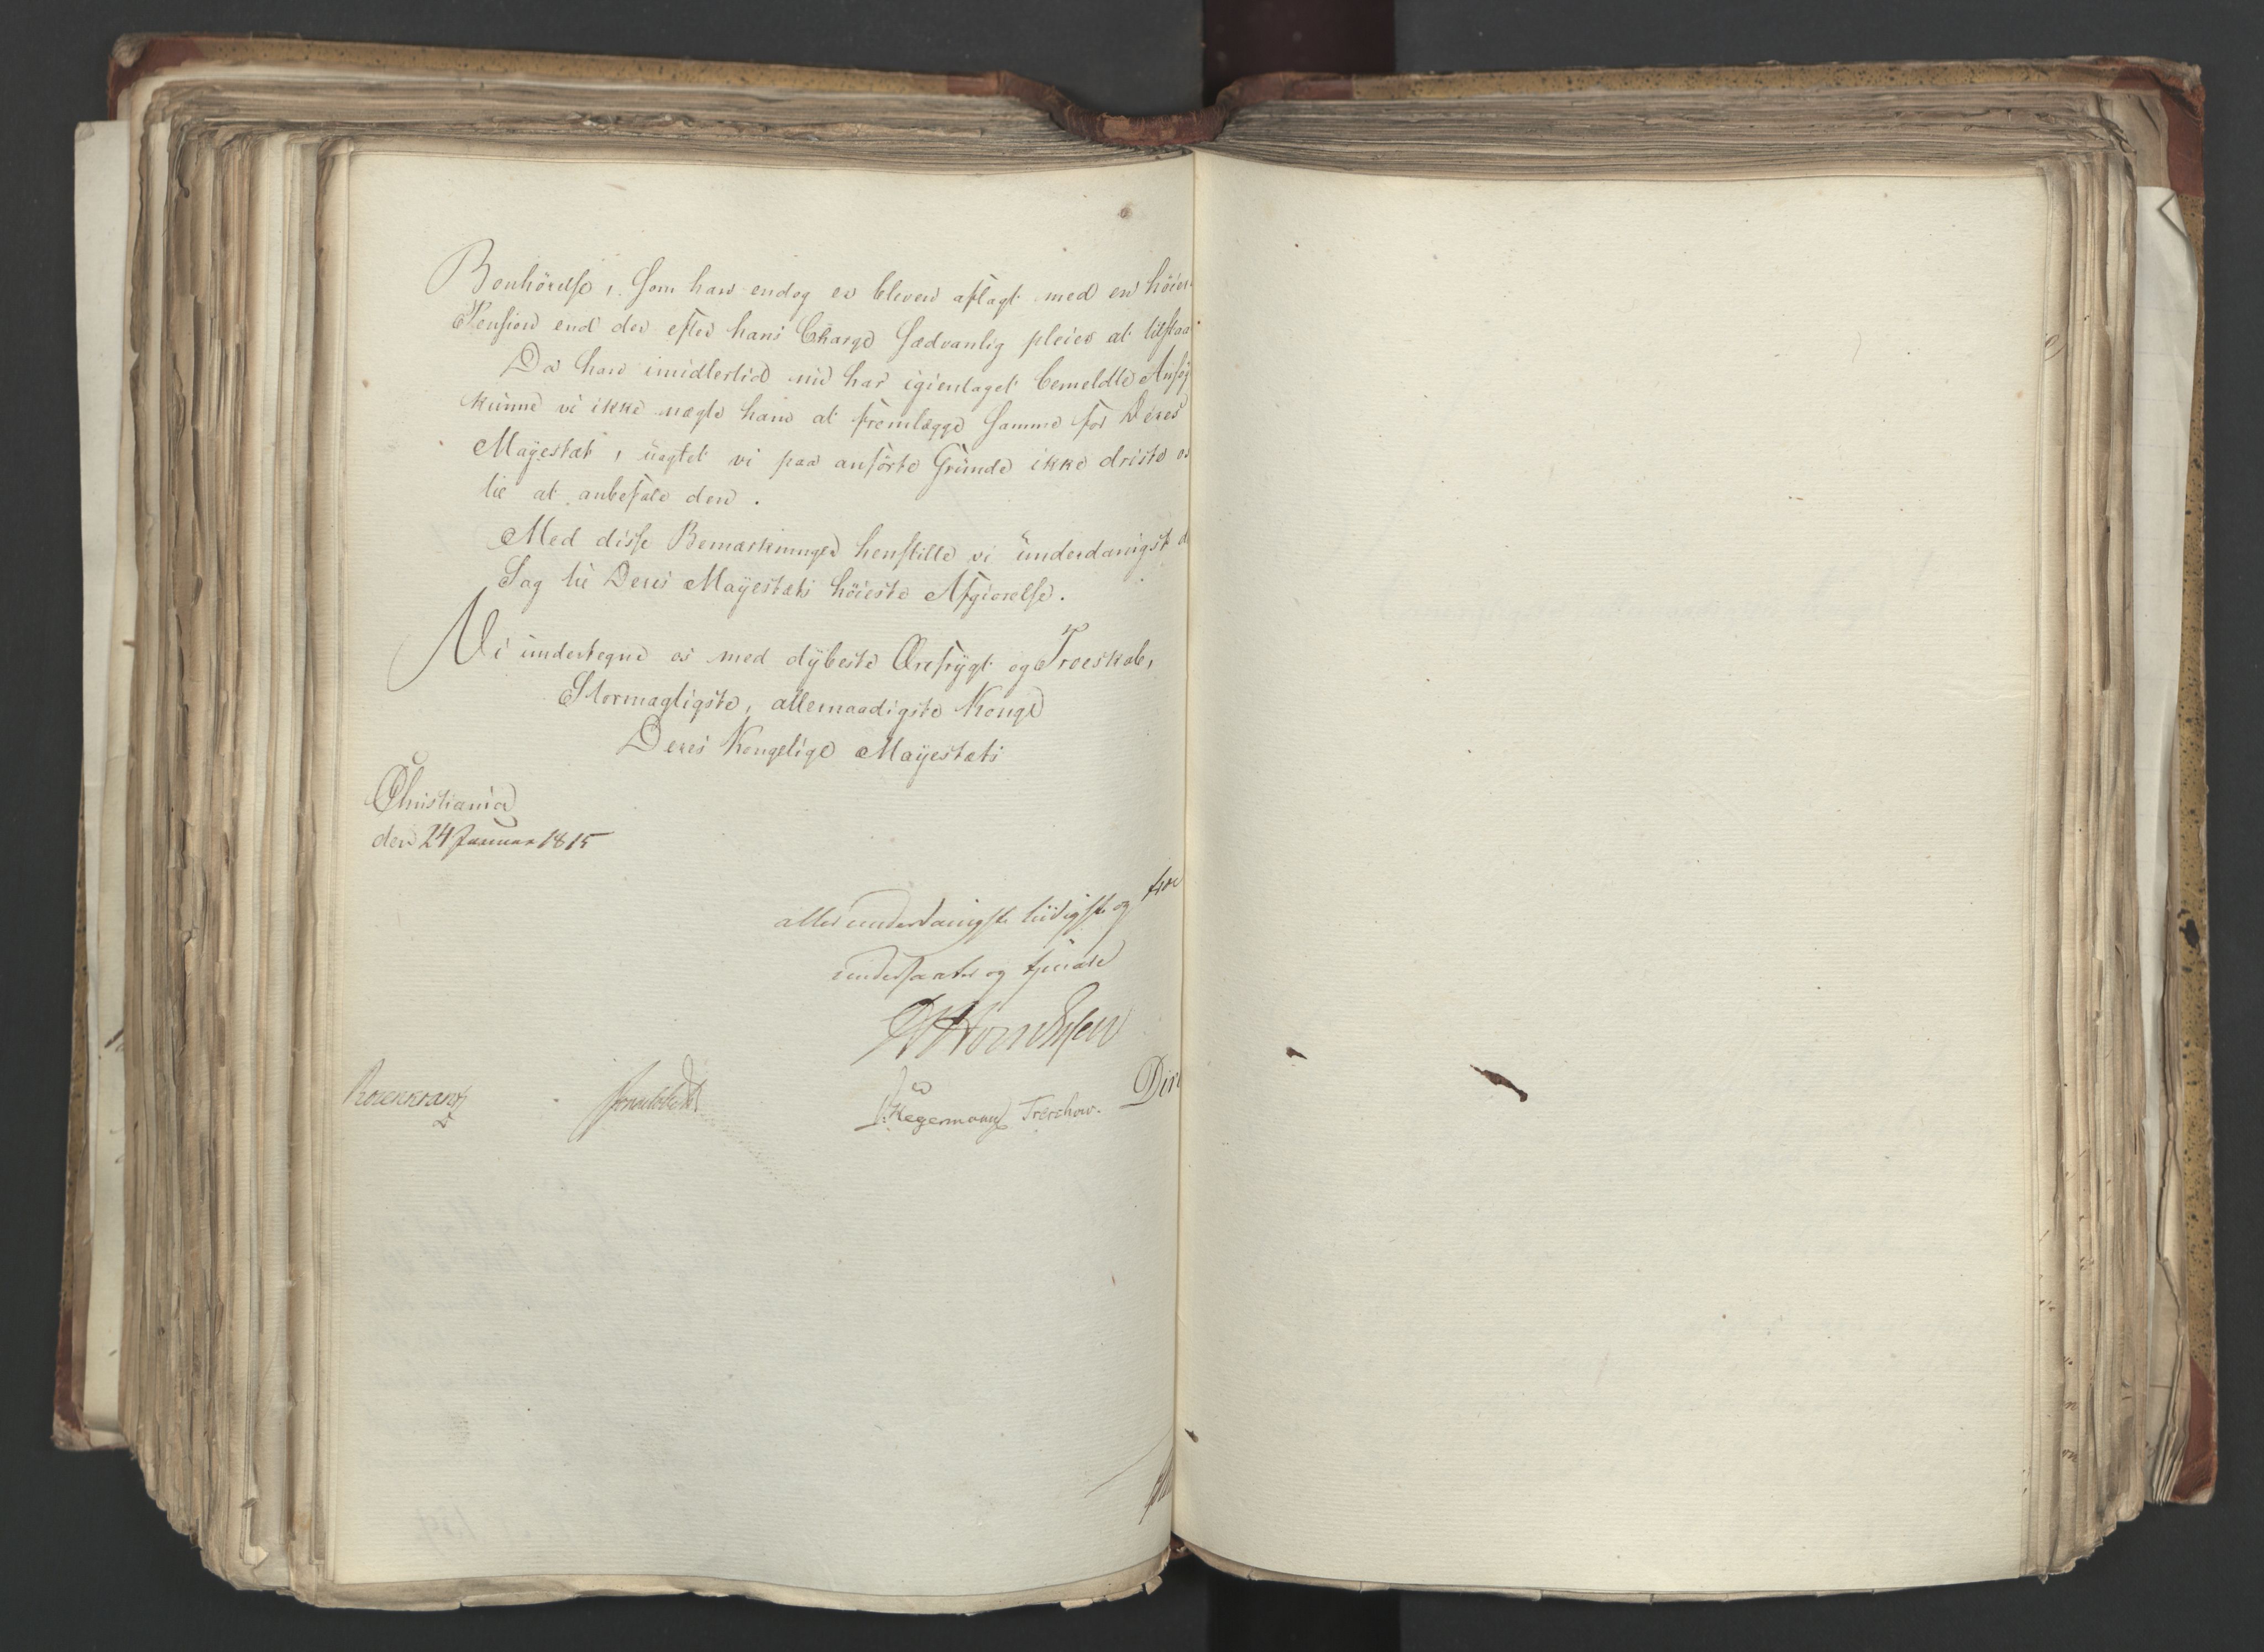 Bønhørelse, som han endog er bleven aflagt med en höier
Pension end der efter hans Charge sædvanlig pleier at tilstaa
Da han imidlertid nu har igientaget bemeldte Ansøg
kunne vi ikke nægte ham at fremlægge samme for Deres
Mayestæt, uagtet vi paa anførte Grunde ikke driste os
til at anbefale den.
Med disse Bemærkninger henstille vi underdanigst d
Sag til Deres Mayestæts höieste Afgiørelse.
Vi undertegne os med dybeste Ærefrygt og Troeskab,
Stormægtigste, allernaadigste Konge
Deres Kongelige Mayestæts
Christiania
den 24 Januar 1815
allerunderdanigste lüdigste og troe
undersaatter og tjenere
Rosenkrantz
D: Hegermann Treschow.